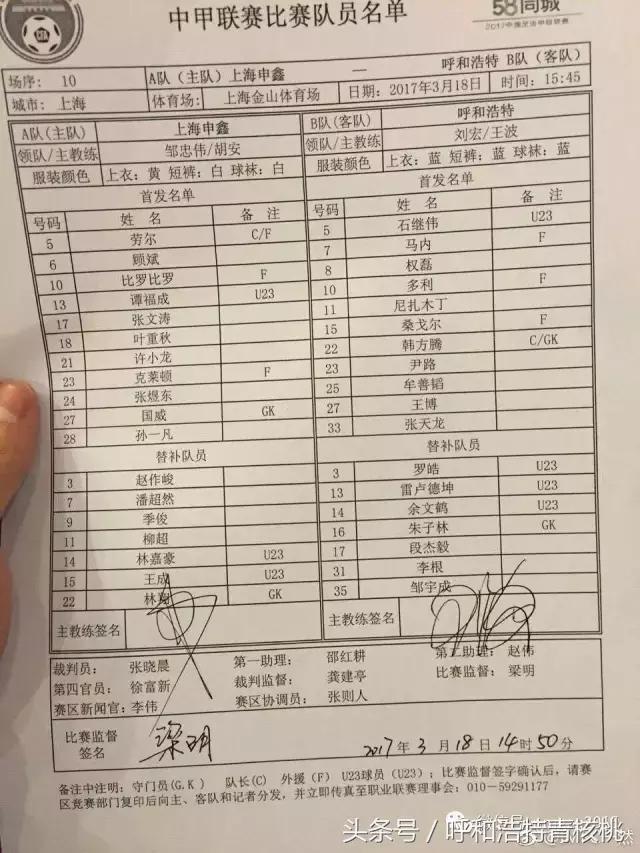 中甲联赛比赛队员名单
58同城
2017中国足球甲级联赛
场序: 10 A队(主队)上海申鑫 — 呼和浩特 B队(客队)
城市: 上海 体育场: 上海金山体育场 日期: 2017年3月18日 时间: 15:45
A队(主队) 上海申鑫 B队(客队) 呼和浩特
领队/主教练 邹忠伟/胡安 领队/主教练 刘宏/王波
服装颜色 上衣: 黄 短裤: 白 球袜: 白 服装颜色 上衣: 蓝 短裤: 蓝 球袜: 蓝
首发名单 首发名单
号码 姓 名 备 注 号码 姓 名 备 注
5 劳尔 C/F 5 石继伟 U23
6 顾斌 7 马内 F
10 比罗比罗 F 8 权磊
13 谭福成 U23 10 多利 F
17 张文涛 11 尼扎木丁
18 叶重秋 15 桑戈尔 F
21 许小龙 22 韩方腾 C/GK
23 克莱顿 F 23 尹路
24 张煜东 25 牟善韬
27 国威 GK 27 王博
28 孙一凡 33 张天龙
替补队员 替补队员
3 赵作峻 3 罗皓 U23
7 潘超然 13 雷卢德坤 U23
9 季俊 14 余文鹤 U23
11 柳超 16 朱子林 GK
14 林嘉豪 U23 17 段杰毅
15 王成 U23 31 李根
22 林翔 GK 35 邹宇成
主教练签名 主教练签名
裁判员: 张晓晨 第一助理: 邵红耕 第二助理: 赵伟
第四官员: 徐富新 裁判监督: 龚建亭 比赛监督: 梁明
赛区新闻官: 李伟 赛区协调员: 张则人
比赛监督签名 梁明 2017年3月18日14时50分
备注中注明: 守门员(G.K) 队长(C) 外援(F) U23球员(U23); 比赛监督签字确认后, 请赛
区竞赛部门复印后向主、客队和记者分发, 并立即传真至职业联赛理事会: 010-59291177
头条号 / 呼和浩特青核桃